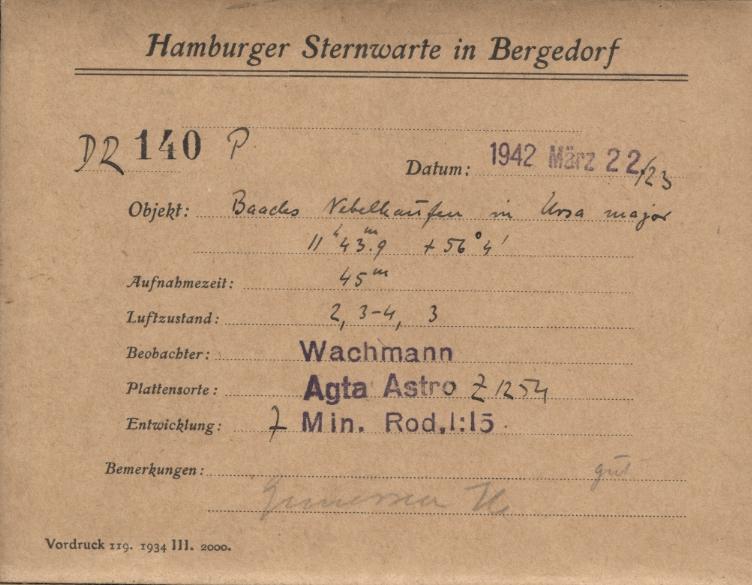 Hamburger Sternwarte in Bergedorf
DR 140 P
Datum: 1942 März 22/23
Objekt: Baades Nebelhaufen in Ursa major
11ʰ43ᵐ.9 +56°4'
Aufnahmezeit: 45ᵐ
Luftzustand: 2, 3-4, 3
Beobachter: Wachmann
Plattensorte: Agfa Astro Z 1254
Entwicklung: 7 Min. Rod. 1:15.
Bemerkungen: gut
Vordruck 119. 1934 III. 2000.